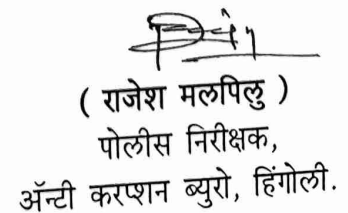 ( राजेश मलपिलु )
पोलीस निरीक्षक,
ॲन्टी करप्शन ब्युरो, हिंगोली.